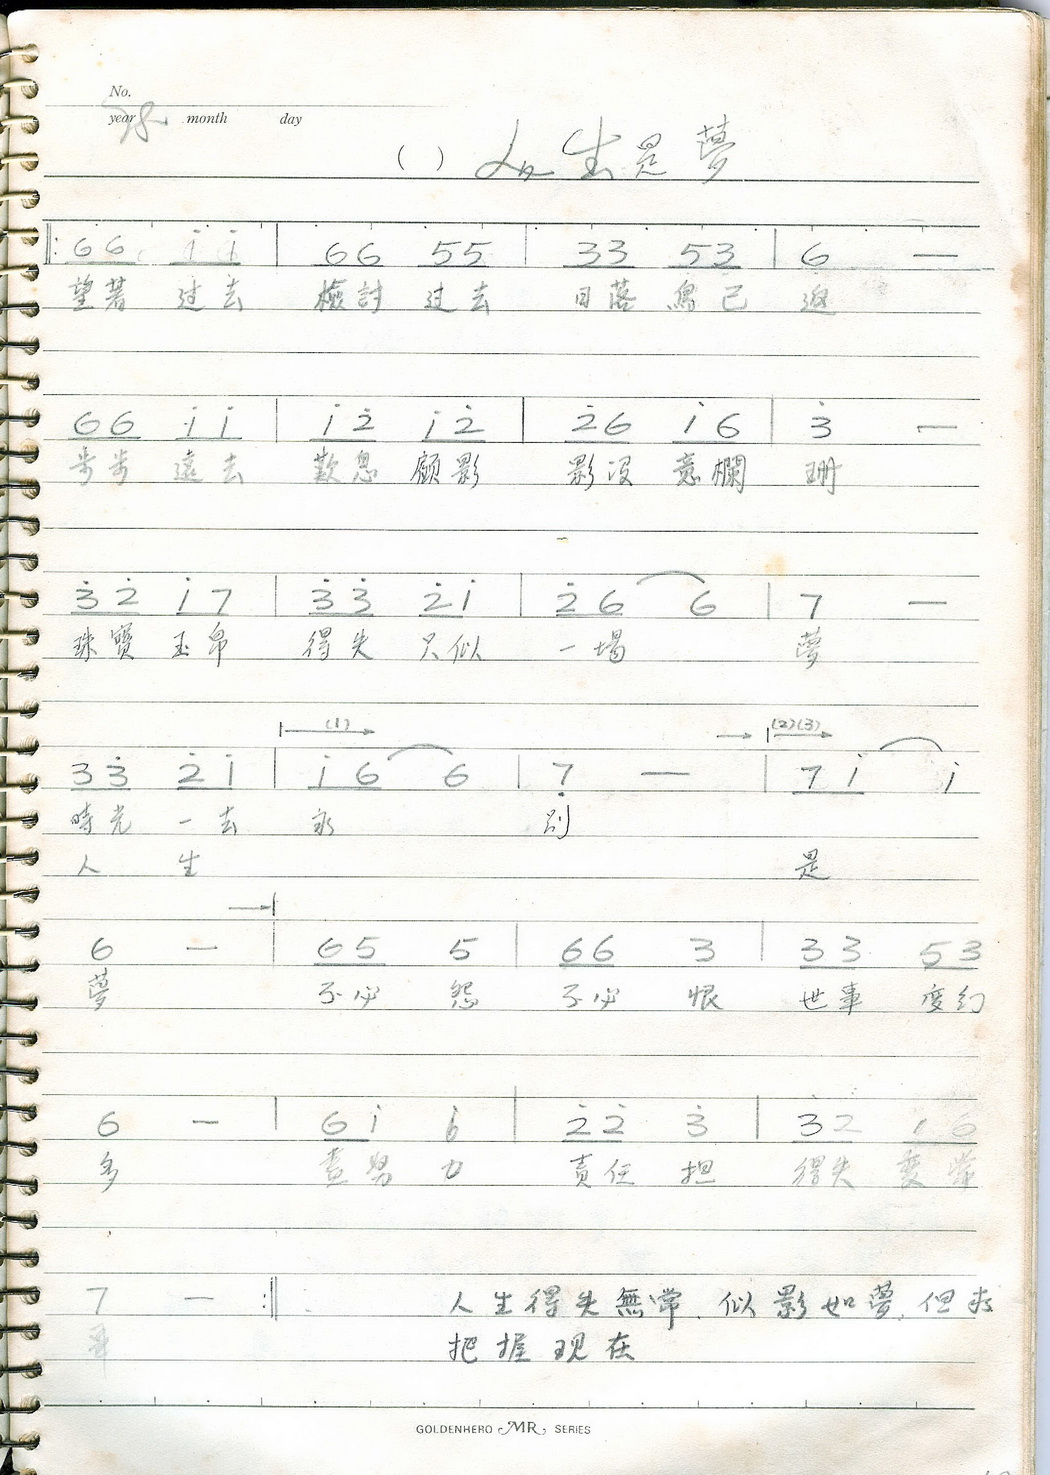 No.
year 78. month day
( ) 人生是夢
6 6 i i | 6 6 5 5 | 3 3 5 3 | 6 —
望著 过去 檢討 过去 日落 鳥已 返
6 6 i i | i 2̇ i 2̇ | 2̇ 6 i 6 | 3̇ —
步步 遠去 歎息 顧影 影沒 意欄 珊
3̇ 2̇ i 7 | 3̇ 3̇ 2̇ i | 2̇ 6 6 | 7 —
珠寶 玉帛 得失 只似 一場 夢
(1) (2)(3)
3 3̇ 2̇ i | i 6 6 | 7̣ — | 7 i i
時光 一去 永 別
人 生 是
6 — | 6 5 5 | 6 6 3 | 3 3 5 3
夢 不必 怨 不必 恨 世事 变幻
6 — | 6 i | 2̇ 2̇ 3̇ | 3̇ 2 i 6
多 努 力 責任 担 得失 變常
7 — :‖
人生得失無常.似影如夢,但求
把握现在
GOLDENHERO MR SERIES